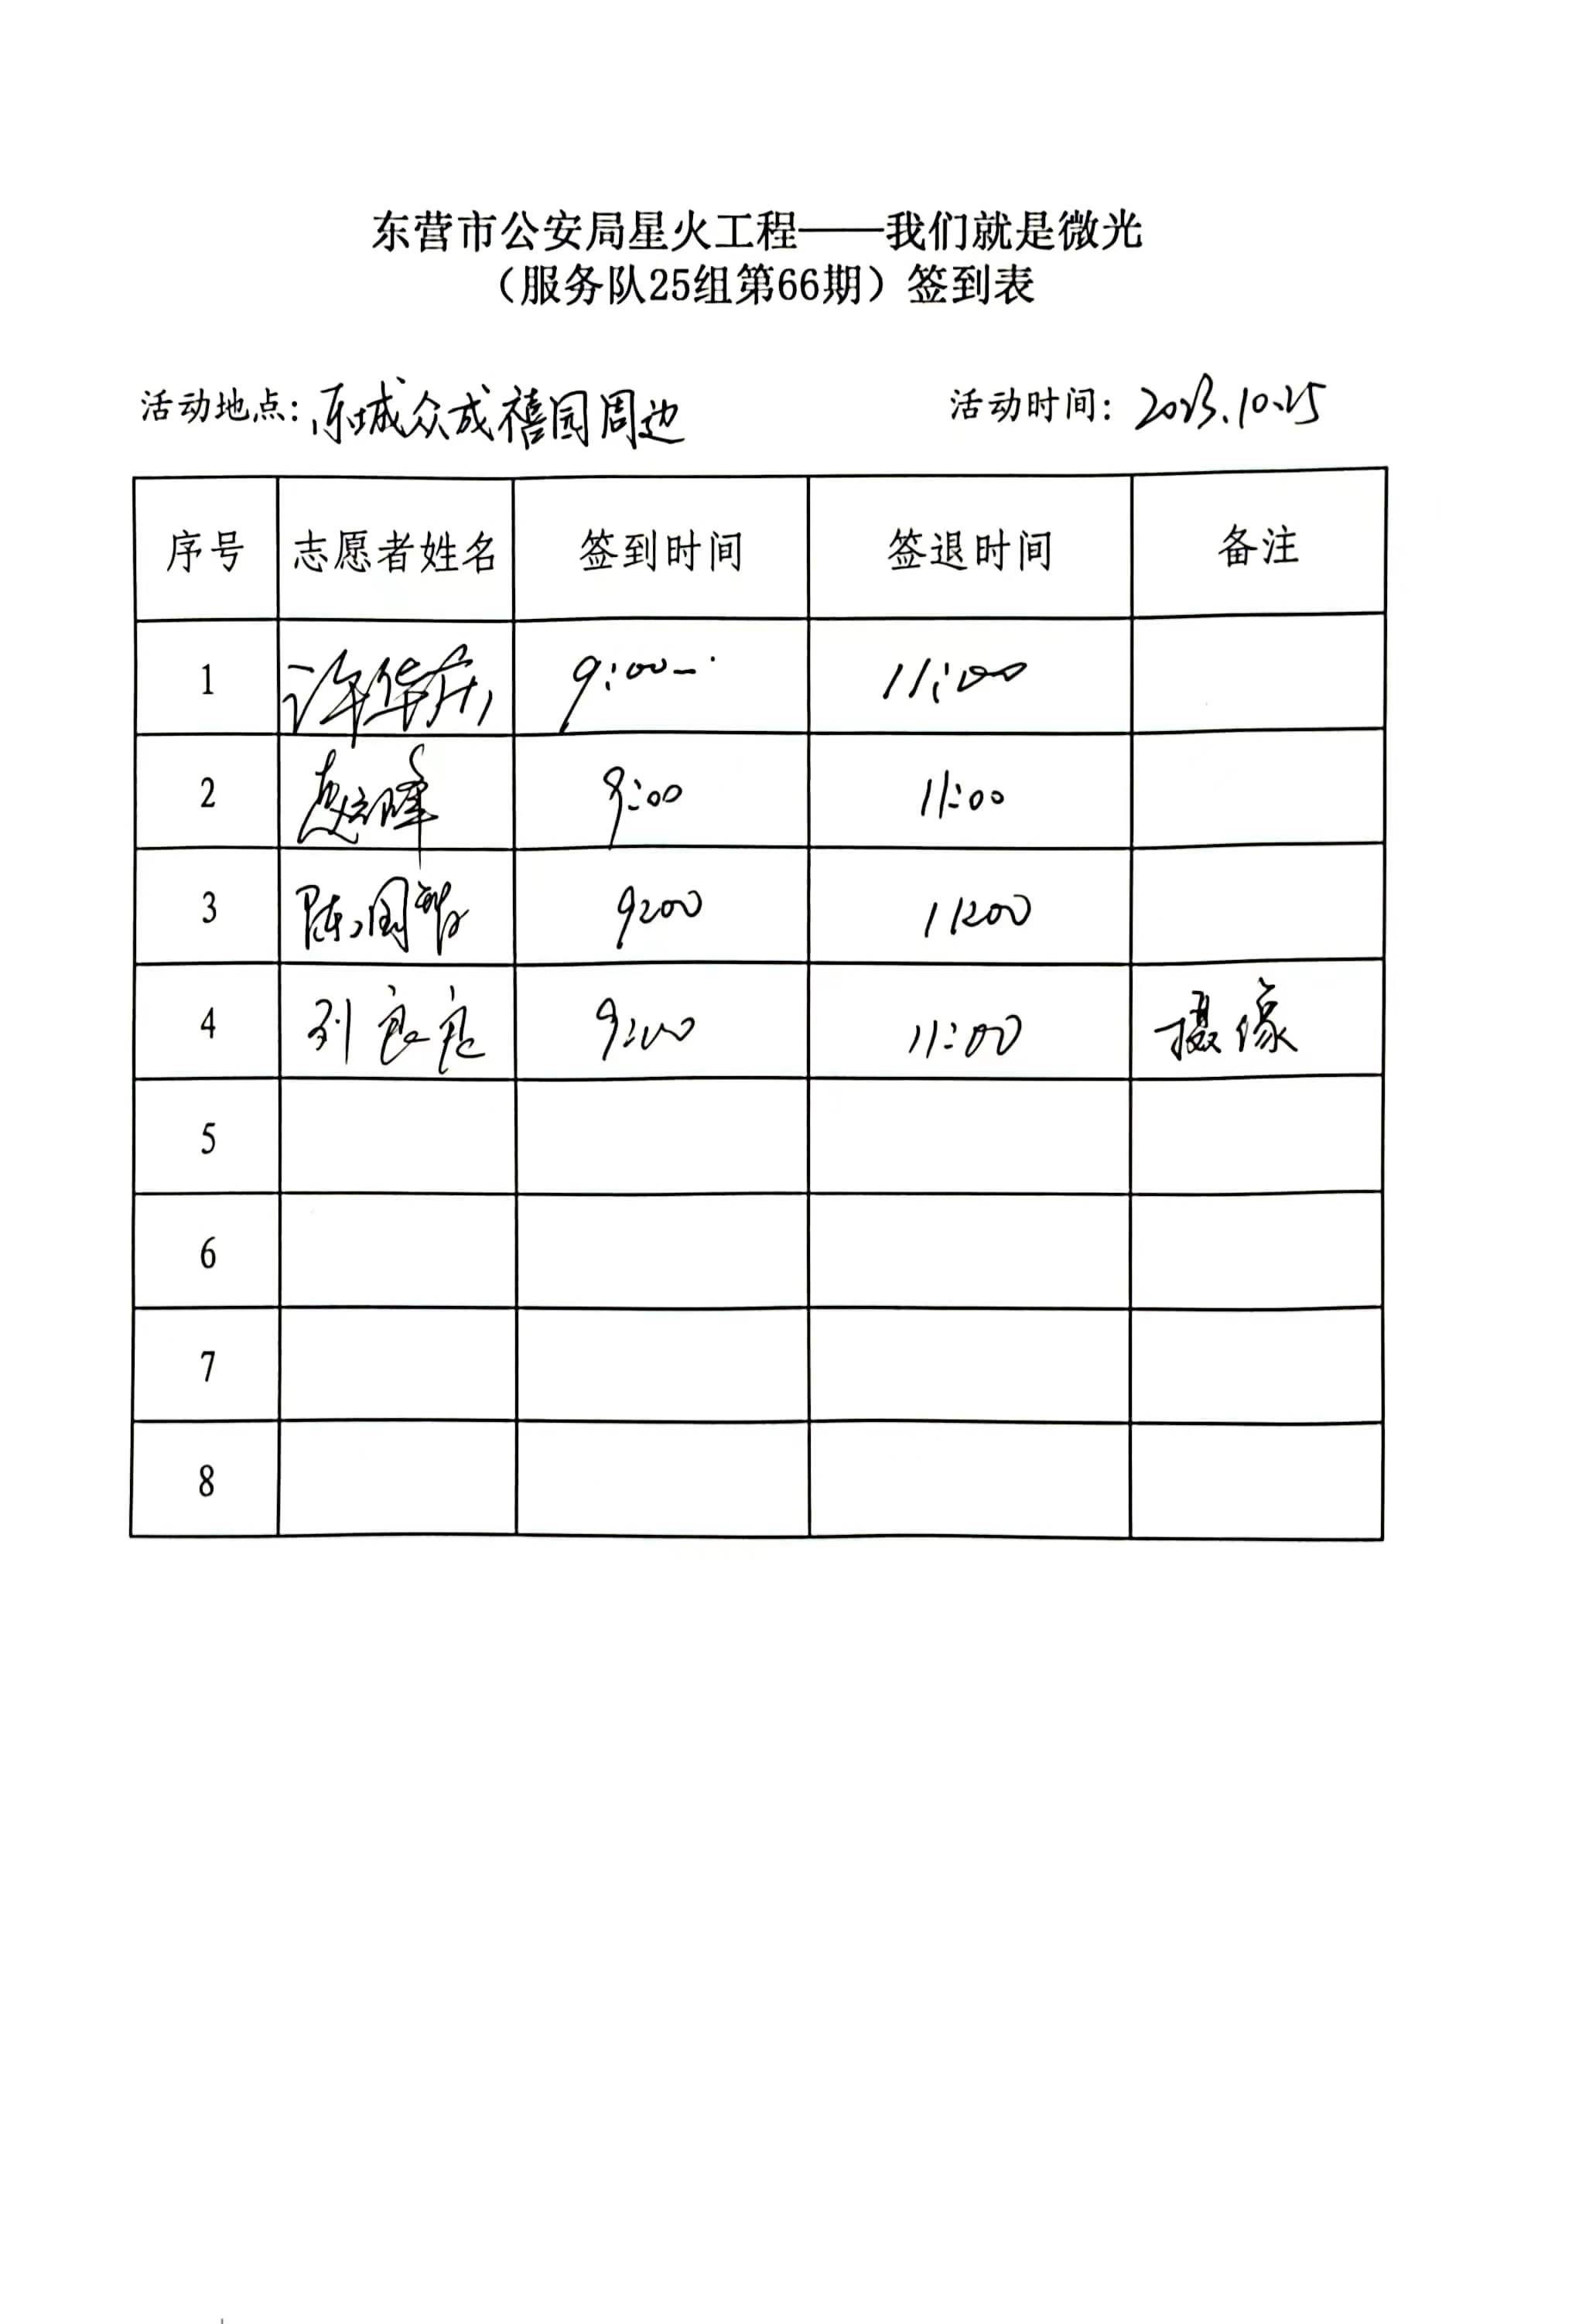 东营市公安局星火工程——我们就是微光
（服务队25组第66期）签到表
活动地点：东城众成禧园周边 活动时间：2023.10.25
序号 志愿者姓名 签到时间 签退时间 备注
1 许华 9:00 11:00
2 9:00 11:00
3 陈国 9:00 11:00
4 刘良 9:00 11:00 摄像
5
6
7
8